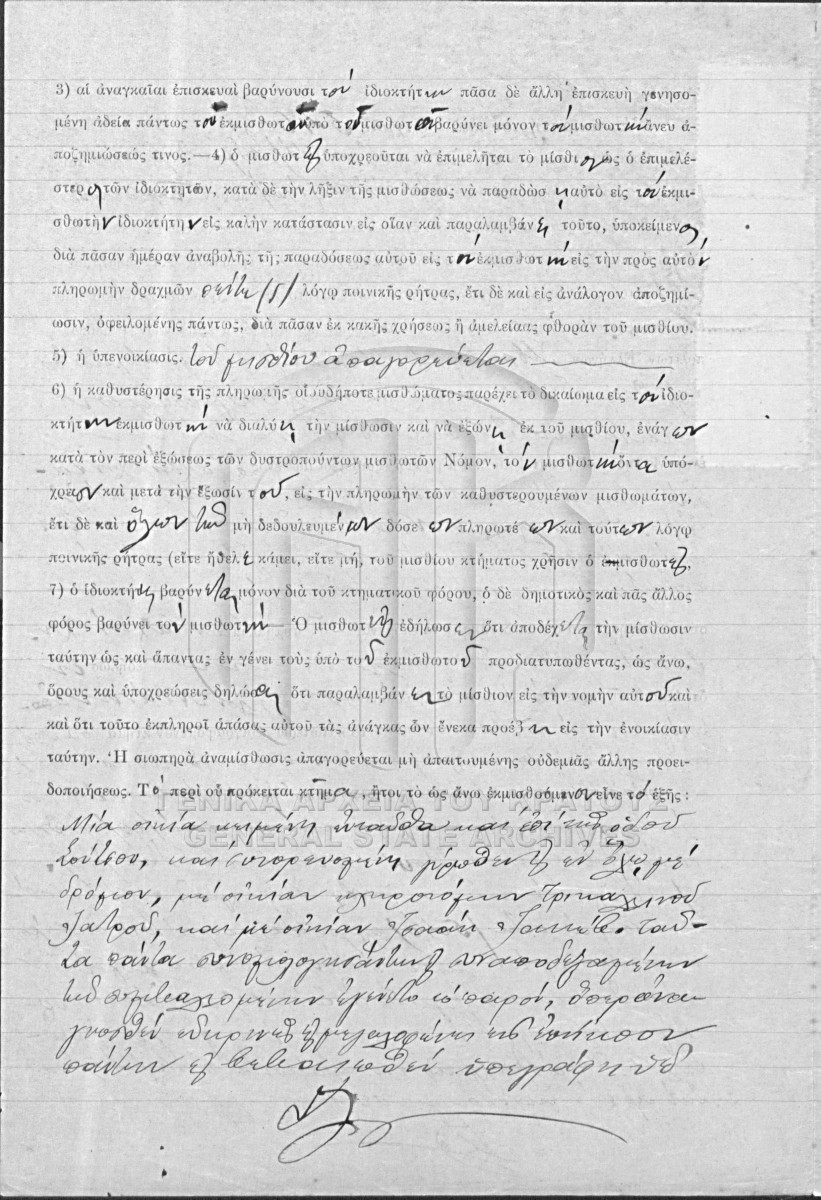 3) αἱ ἀναγκαῖαι ἐπισκευαὶ βαρύνουσι τὸν ἰδιοκτήτην πᾶσα δὲ ἄλλη ἐπισκευὴ γενησο-
μένη ἀδείᾳ πάντως τοῦ ἐκμισθωτοῦ ὑπὸ τοῦ μισθωτοῦ βαρύνει μόνον τὸν μισθωτὴν ἄνευ ἀ-
ποζημιώσεώς τινος.—4) ὁ μισθωτὴς ὑποχρεοῦται νὰ ἐπιμελῆται τὸ μίσθιον ὡς ὁ ἐπιμελέ-
στερος τῶν ἰδιοκτητῶν, κατὰ δὲ τὴν λῆξιν τῆς μισθώσεως νὰ παραδώσῃ αὐτὸ εἰς τὸν ἐκμι-
σθωτὴν ἰδιοκτήτην εἰς καλὴν κατάστασιν εἰς οἵαν καὶ παραλαμβάνει τοῦτο, ὑποκείμενος
διὰ πᾶσαν ἡμέραν ἀναβολῆς τῆς παραδόσεως αὐτοῦ εἰς τὸν ἐκμισθωτὴν εἰς τὴν πρὸς αὐτὸν
πληρωμὴν δραχμῶν πέντε (5) λόγῳ ποινικῆς ρήτρας, ἔτι δὲ καὶ εἰς ἀνάλογον ἀποζημί-
ωσιν, ὀφειλομένης πάντως, διὰ πᾶσαν ἐκ κακῆς χρήσεως ἢ ἀμελείαας φθορὰν τοῦ μισθίου.
5) ἡ ὑπενοικίασις. τοῦ μισθίου ἀπαγορεύεται
6) ἡ καθυστέρησις τῆς πληρωμῆς οἱουδήποτε μισθώματος παρέχει τὸ δικαίωμα εἰς τὸν ἰδιο-
κτήτην ἐκμισθωτὴν νὰ διαλύῃ τὴν μίσθωσιν καὶ νὰ ἐξώνῃ ἐκ τοῦ μισθίου, ἐνάγων
κατὰ τὸν περὶ ἐξώσεως τῶν δυστροπούντων μισθωτῶν Νόμον, τὸν μισθωτὴν ὄντα ὑπό-
χρεων καὶ μετὰ τὴν ἔξωσίν του, εἰς τὴν πληρωμὴν τῶν καθυστερουμένων μισθωμάτων,
ἔτι δὲ καὶ ὅλων τῶν μὴ δεδουλευμένων δόσεων πληρωτέων καὶ τούτων λόγῳ
ποινικῆς ρήτρας (εἴτε ἤθελε κάμει, εἴτε μή, τοῦ μισθίου κτήματος χρῆσιν ὁ μισθωτής.
7) ὁ ἰδιοκτήτης βαρύνεται μόνον διὰ τοῦ κτηματικοῦ φόρου, ὁ δὲ δημοτικὸς καὶ πᾶς ἄλλος
φόρος βαρύνει τὸν μισθωτήν— Ὁ μισθωτὴς ἐδήλωσεν ὅτι ἀποδέχεται τὴν μίσθωσιν
ταύτην ὡς καὶ ἅπαντας ἐν γένει τοὺς ὑπὸ τοῦ ἐκμισθωτοῦ προδιατυπωθέντας, ὡς ἄνω,
ὅρους καὶ ὑποχρεώσεις δηλώσας ὅτι παραλαμβάνει τὸ μίσθιον εἰς τὴν νομὴν αὐτοῦ καὶ
καὶ ὅτι τοῦτο ἐκπληροῖ ἁπάσας αὐτοῦ τὰς ἀνάγκας ὧν ἕνεκα προέβη εἰς τὴν ἐνοικίασιν
ταύτην. Ἡ σιωπηρὰ ἀναμίσθωσις ἀπαγορεύεται μὴ ἀπαιτουμένης οὐδεμιᾶς ἄλλης προει-
δοποιήσεως. Τὸ περὶ οὗ πρόκειται κτῆμα, ἤτοι τὸ ὡς ἄνω ἐκμισθούμενον εἶνε τὸ ἑξῆς :
ΓΕΝΙΚΑ ΑΡΧΕΙΑ ΤΟΥ ΚΡΑΤΟΥΣ
GENERAL STATE ARCHIVES
Μία οἰκία κειμένη ἐνταῦθα καὶ ἐπὶ τῆς ὁδοῦ
Σούτσου, καὶ συνορευομένη μὲ
δρόμον, μὲ οἰκίαν κληρονόμων Τρικαλινοῦ
Ἰατροῦ, καὶ μὲ οἰκίαν Ἰσαὰκ Ταῦ-
τα πάντα συνομολογησάντων συναποδεξαμένων
τῶν συμβαλλομένων ἐγένετο τὸ παρόν, ὅπερ ἀνα-
γνωσθὲν εὐκρινῶς μεγαλοφώνως εἰς ἐπήκοον
πάντων βεβαιωθὲν ὑπεγράφη